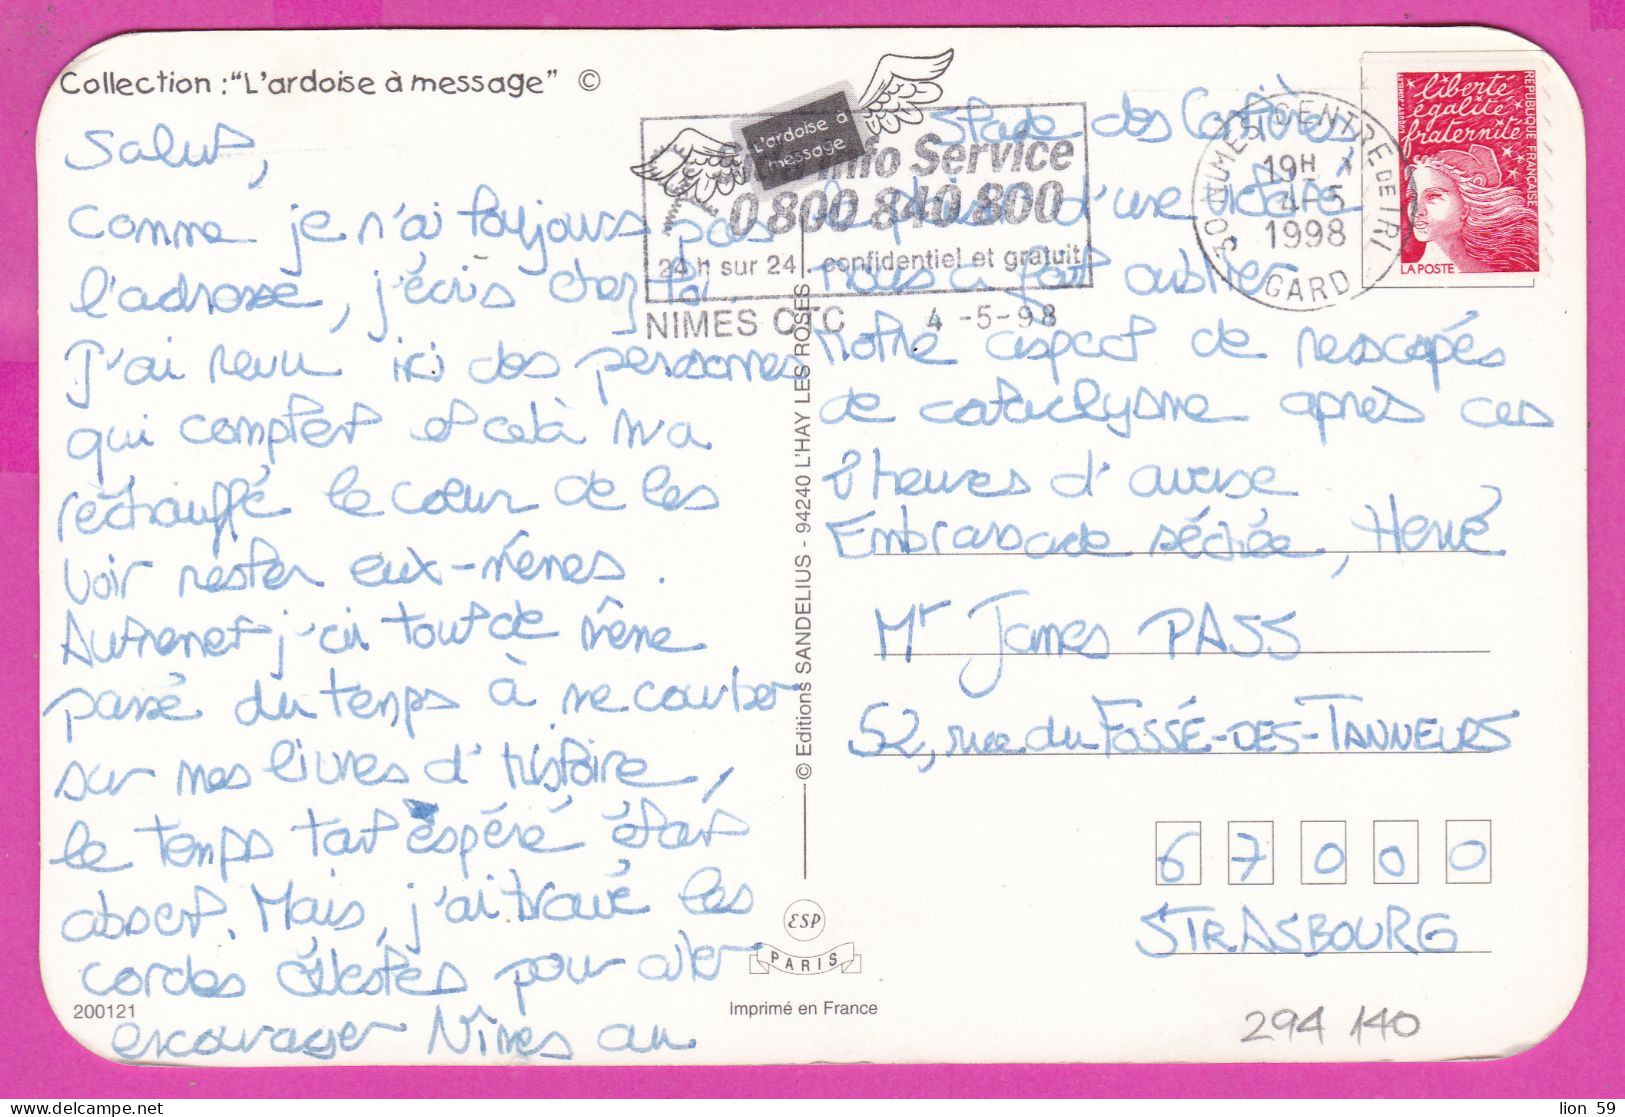 Collection : "L'ardoise à message" ©
Salut,
Comme je n'ai toujours pas
l'adresse, j'écris chez toi.
J'ai revu ici des personnes
qui comptent et celà m'a
réchauffé le coeur de les
voir rester eux-mêmes.
Autrement j'ai tout de même
passé du temps à me courber
sur mes livres d'histoire,
le temps tant espéré étant
absent. Mais, j'ai trouvé les
cordes célestes pour aller
encourager Nîmes au
200121
L'ardoise à
message
Info Service
0 800 840 800
24 h sur 24, confidentiel et gratuit
NIMES CTC 4 -5-98
30 NIMES CENTRE DE TRI
19H
4-5
1998
GARD
liberté
égalité
fraternité
REPUBLIQUE FRANÇAISE
LA POSTE
Stade des Costières,
le plaisir d'une victoire
nous a fait oublier
notre aspect de rescapés
de cataclysme après ces
2 heures d'averse
Embrassade séchée, Hervé
Mr James PASS
52, rue du FOSSÉ-DES-TANNEURS
6 7 0 0 0
STRASBOURG
© Editions SANDELIUS - 94240 L'HAY LES ROSES
ESP
PARIS
Imprimé en France
294 140
lion 59